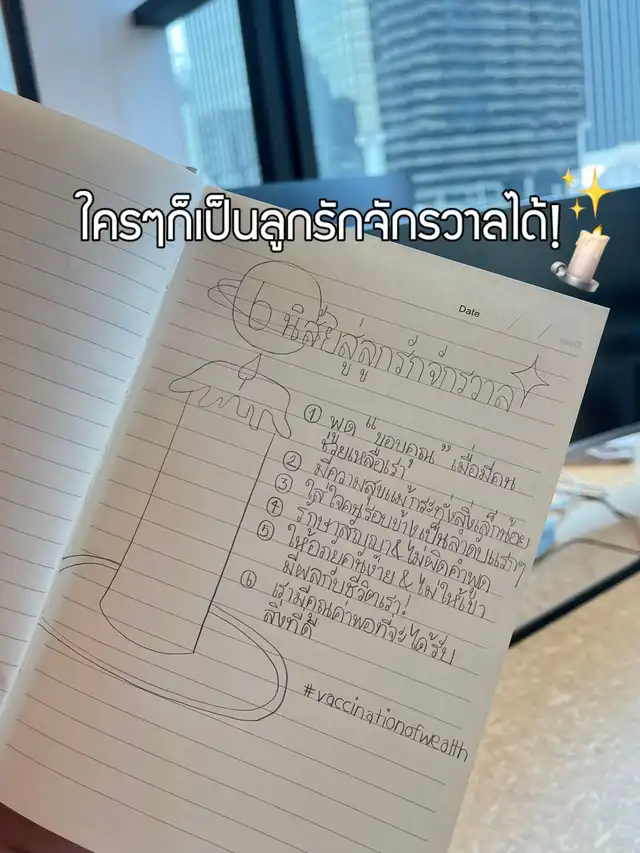 ใครๆก็เป็นลูกรักจักรวาลได้!
Date / /
6 นิสัยสู่ลูกรักจักรวาล
① พูด “ขอบคุณ” เมื่อมีคน
ช่วยเหลือเรา
② มีความสุขแม้กระทั่งสิ่งเล็กน้อย
③ ใส่ใจคนรอบข้างเป็นลำดับแรกๆ
④ รักษาสัญญา & ไม่ผิดคำพูด
⑤ ให้อภัยคนง่าย & ไม่ให้เขา
มีผลกับชีวิตเรา!
⑥ เรามีคุณค่าพอที่จะได้รับ
สิ่งที่ดี
#vaccinationofwealth